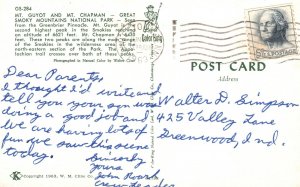 GS-284
MT. GUYOT AND MT. CHAPMAN — GREAT
SMOKY MOUNTAINS NATIONAL PARK — Seen
from the Greenbrier Pinnacle. Mt. Guyot is the
second highest peak in the Smokies reaching
an altitude of 6621 feet. Mt. Chapman is 6430
feet. These two peaks along the main range
of the Smokies in the wilderness area of the
north-eastern section of the Park. The Appa-
lachian trail crosses close to each of these
peaks.
Natural Color Photograph by Walter Cline
Dear Parents,
I thought I'd write and
tell you your son was
doing a good job and
we are having lots of
fun. We saw his
today.
Sincerely
Yours
John Roark
POST CARD
Address
Walter D. Simpson
425 Valley Lane
Greenwood, Ind.
Copyright 1963, W. M. Cline Co.
K